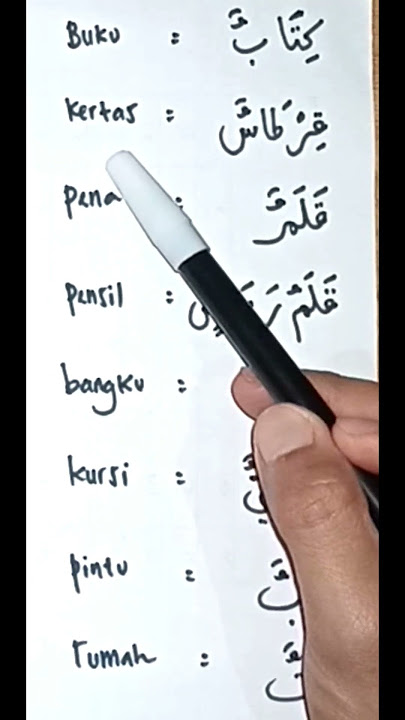 Buku : كِتَابٌ
Kertas : قِرْطَاسٌ
Pena : قَلَمٌ
Pensil : قَلَمُ
bangku :
kursi :
pintu :
rumah :